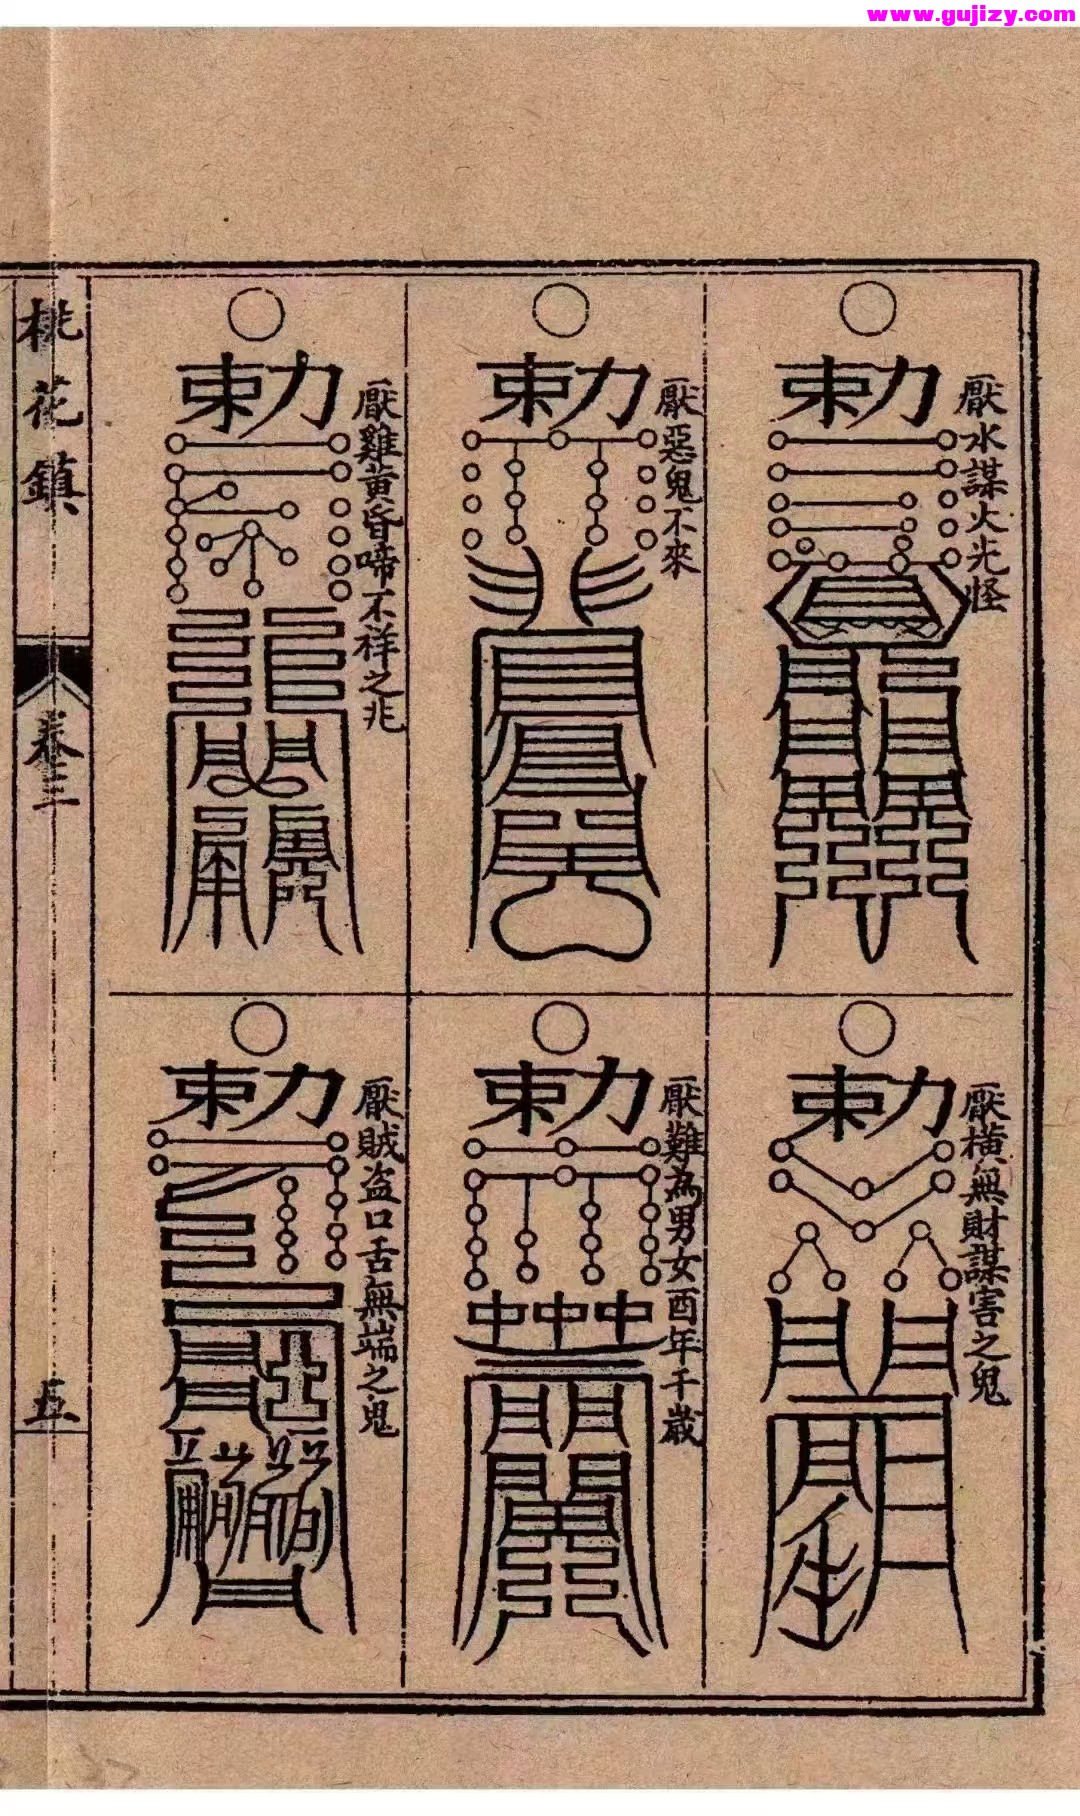 www.gujizy.com
勅
厭水謀火光怪
勅
厭惡鬼不來
勅
厭雞黃昏啼不祥之兆
勅
厭橫無財謀害之鬼
勅
厭難為男女酉年千歲
勅
厭賊盜口舌無端之鬼
桃花鎮
卷三
五